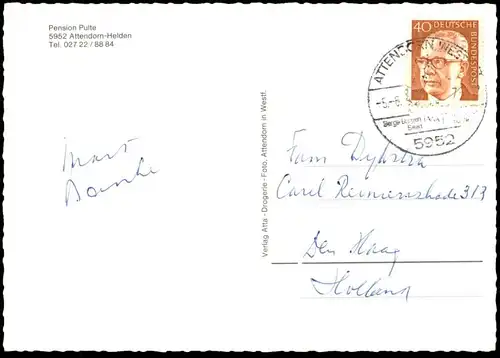 Pension Pulte
5952 Attendorn-Helden
Tel. 027 22 / 88 84
40 DEUTSCHE BUNDESPOST
ATTENDORN, WESTF
5952
Verlag Atta - Drogerie - Foto, Attendorn in Westf.
Fam Dykstra
Carel Reinierszkade 313
Den Haag
Holland